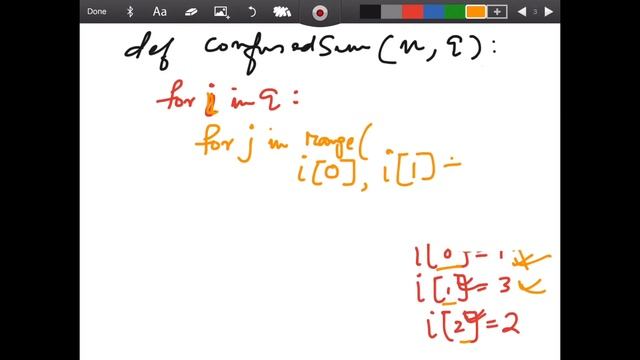 Done Aa 3
def confusedSum(n, q):
for i in q:
for j in range(
i[0], i[1] -
i[0] = 1
i[1] = 3
i[2] = 2